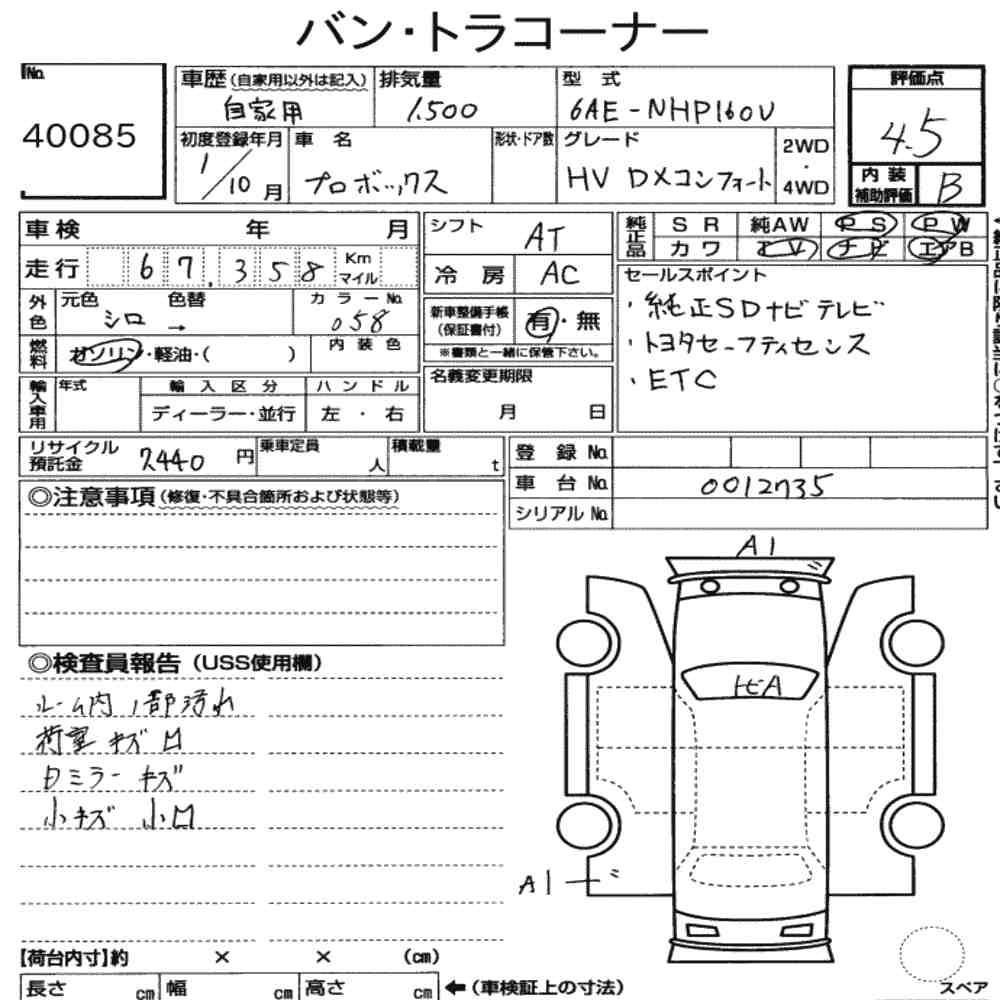 バン・トラコーナー
No. 40085
車歴(自家用以外は記入) 自家用
排気量 1,500
型式 6AE-NHP160V
評価点 4.5
初度登録年月 1/10月
車名 プロボックス
形状・ドア数
グレード HV DXコンフォート
2WD・4WD
内装補助評価 B
車検 年 月
シフト AT
純正品 SR 純AW PS PW
カワ TV ナビ エアB
走行 67,358 Km マイル
冷房 AC
セールスポイント
・純正SDナビテレビ
・トヨタセーフティセンス
・ETC
外色 元色 シロ → 色替 カラーNo. 058
新車整備手帳(保証書付) 有・無
※書類と一緒に保管下さい。
燃料 ガソリン・軽油・( ) 内装色
名義変更期限 月 日
輸入車用 年式 輸入区分 ハンドル
ディーラー・並行 左・右
リサイクル預託金 7440円
乗車定員 人
積載量 t
登録No.
車台No. 0012735
シリアルNo.
◎注意事項(修復・不具合箇所および状態等)
A1
トビA
◎検査員報告(USS使用欄)
ルーム内1部汚れ
荷室キズ凹
日ミラーキズ
小キズ 小凹
A1
【荷台内寸】約 × × (cm)
長さ cm 幅 cm 高さ cm ←(車検証上の寸法)
スペア